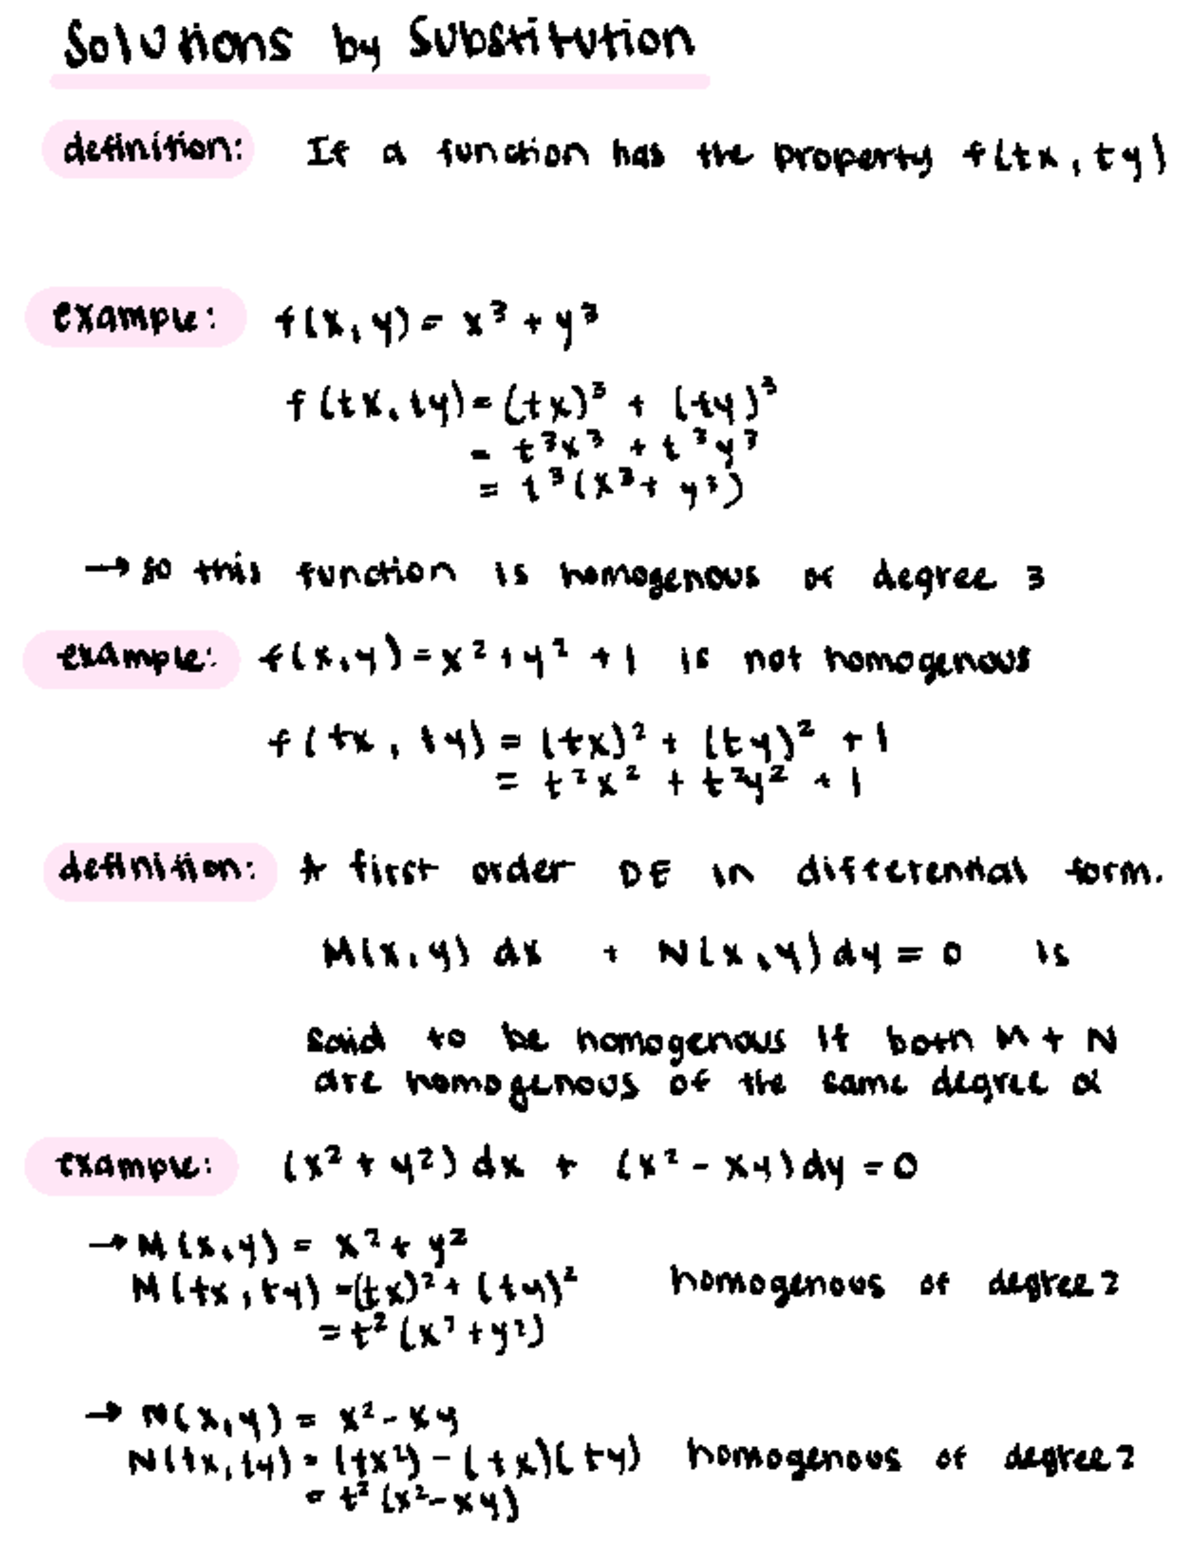 Solutions by Substitution
definition: If a function has the property f(tx, ty)
example: f(x, y) = x³ + y³
f(tx, ty) = (tx)³ + (ty)³
= t³x³ + t³y³
= t³(x³ + y³)
→ so this function is homogenous of degree 3
example: f(x, y) = x² + y² + 1 is not homogenous
f(tx, ty) = (tx)² + (ty)² + 1
= t²x² + t²y² + 1
definition: A first order DE in differential form.
M(x, y) dx + N(x, y) dy = 0 is
said to be homogenous if both M + N
are homogenous of the same degree α
example: (x² + y²) dx + (x² - xy) dy = 0
→ M(x, y) = x² + y²
M(tx, ty) = (tx)² + (ty)² homogenous of degree 2
= t² (x² + y²)
→ N(x, y) = x² - xy
N(tx, ty) = (tx²) - (tx)(ty) homogenous of degree 2
= t² (x² - xy)